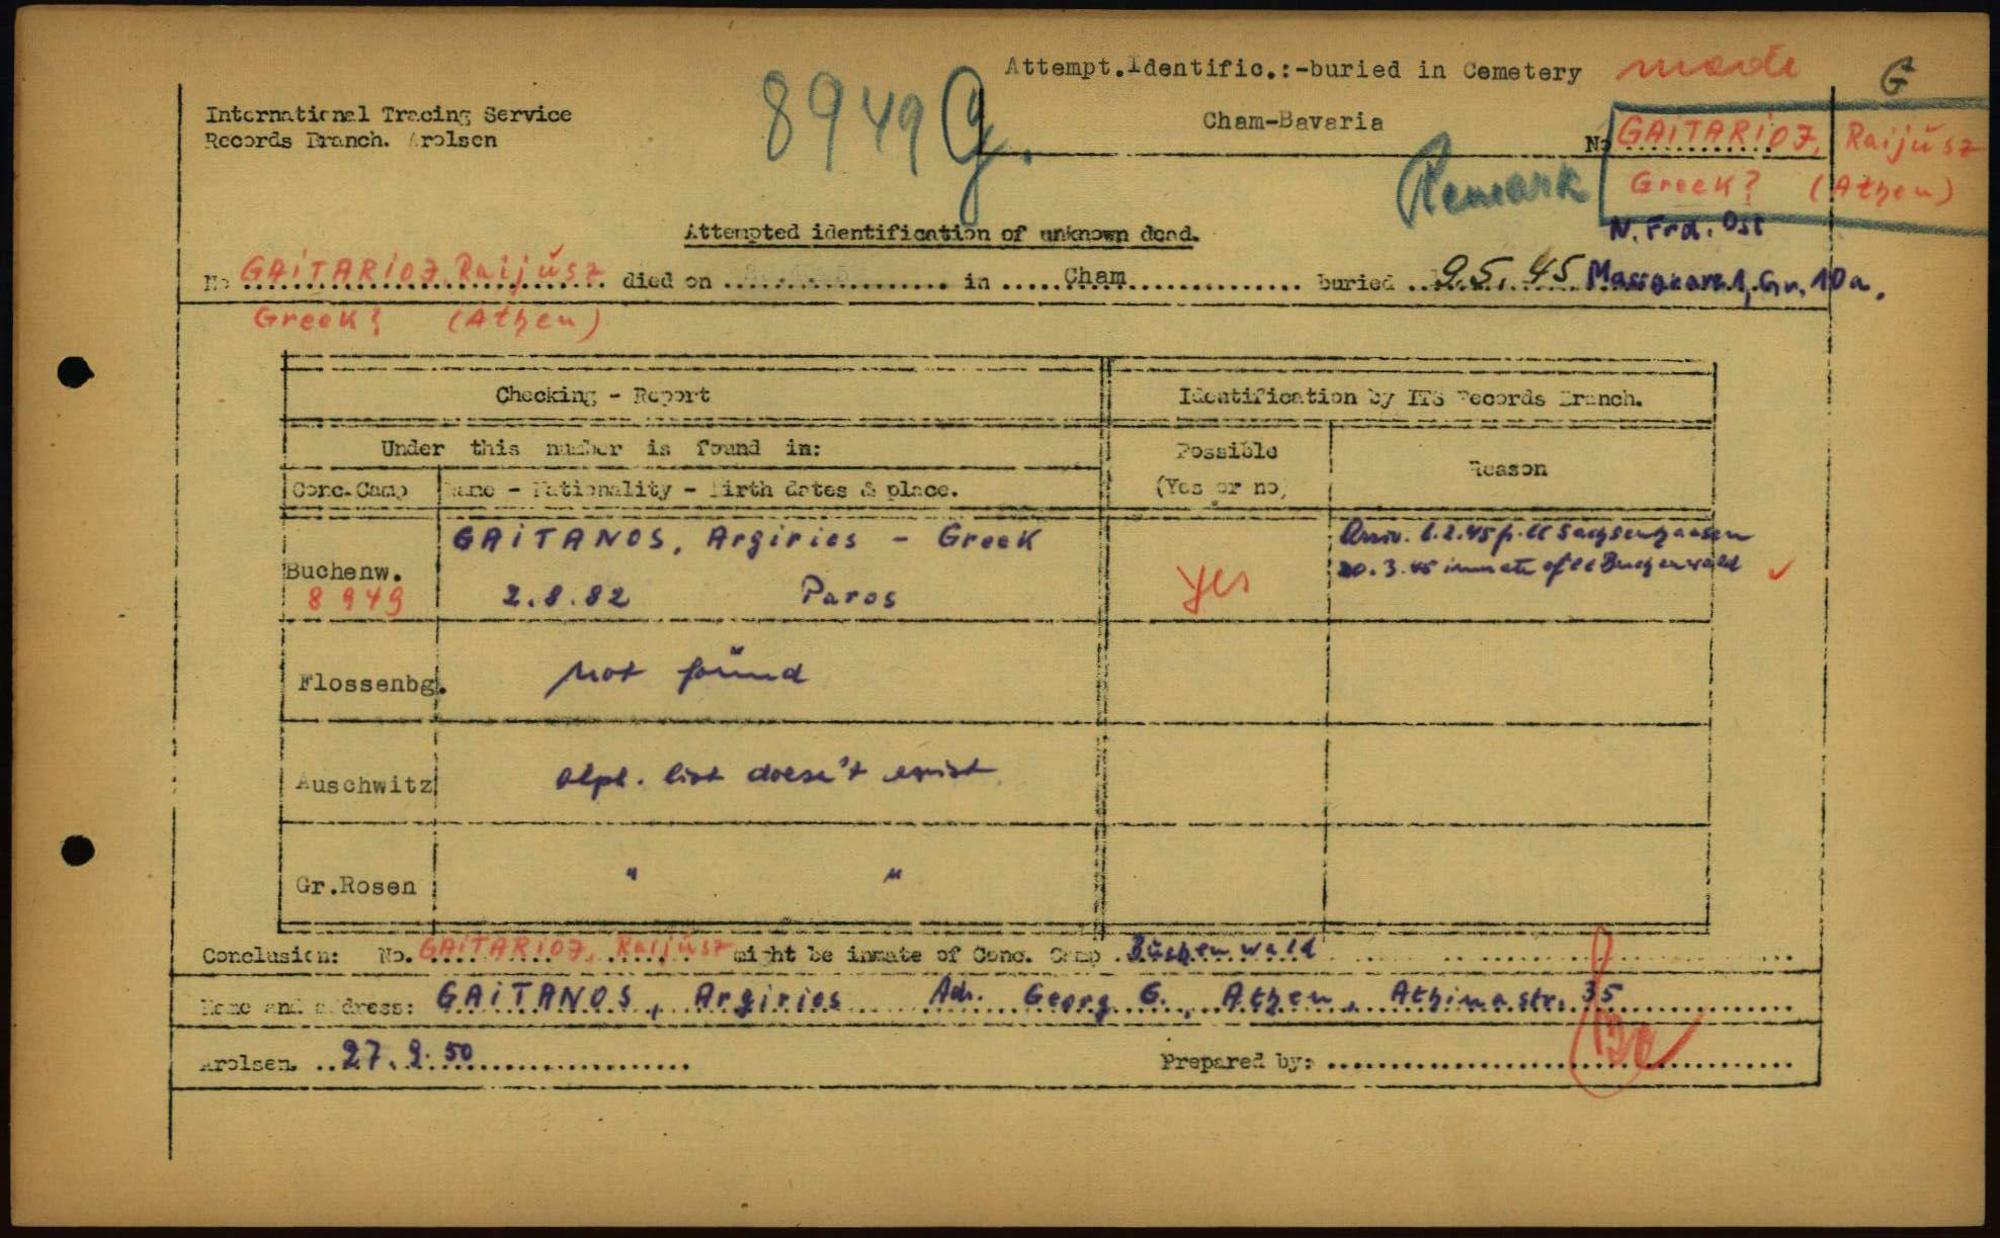 Attempt.Identific.:-buried in Cemetery made G
8949 G.
International Tracing Service
Cham-Bavaria
Records Branch. Arolsen
No GAITARIOZ, Raijŭsz
Remark Greek? (Athen)
N. Frd. Ost
Attempted identification of unknown dead.
No GAITARIOZ, Raijŭsz died on .......... in ..... Cham .......... buried .. 9.5.45 Massgrave 1, Gr. 10a.
Greek? (Athen)
Checking - Report
Identification by ITS Records Branch.
Under this number is found in:
Possible
(Yes or no)
Reason
Conc.Camp
Name - Nationality - Birth dates & place.
GAITANOS, Argiries - Greek
Arriv. 6.2.45 f. CC Sachsenhausen
Buchenw.
20.3.45 inmate of CC Buchenwald
8949
2.8.82 Paros
yes
Flossenbg.
not foŭnd
Auschwitz
alph. list doesn't exist
Gr.Rosen
" "
Conclusion: No. GAITARIOZ, Raijŭsz might be inmate of Conc. Camp . Bŭchenwald
Name and address: GAITANOS, Argiries Adr. Georg G., Athen, Athinastr. 35
Arolsen. .. 27.9.50 ..........
Prepared by: ..........